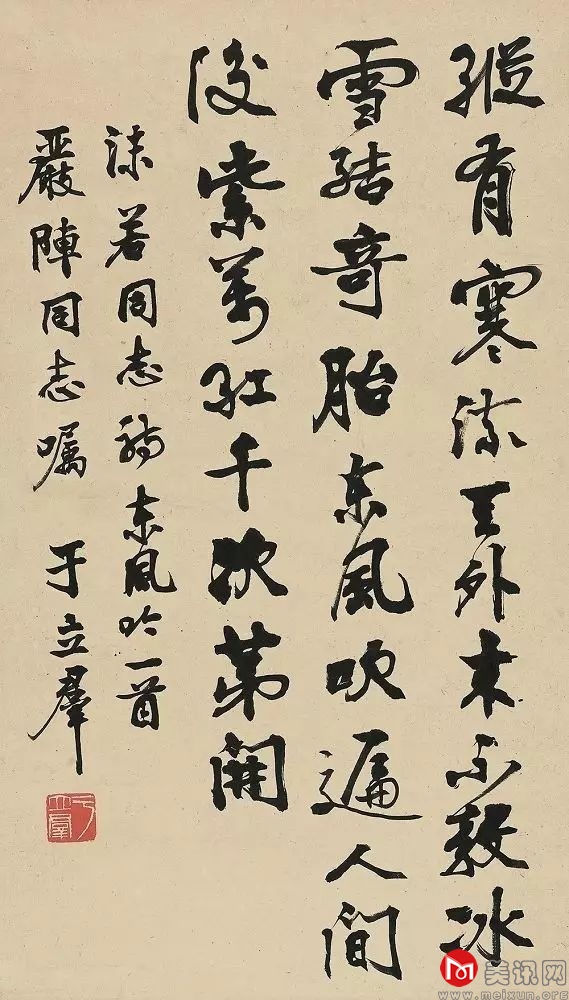 縱有寒流天外来不教冰
雪結奇胎东風吹遍人間
後紫萬紅千次第開
沫若同志詩东風吟一首
嚴陣同志嘱 于立羣
于立羣
美讯网
www.meixun.org